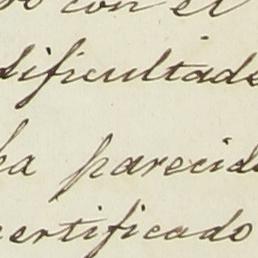 con el
dificultade
ha parecid
certificado